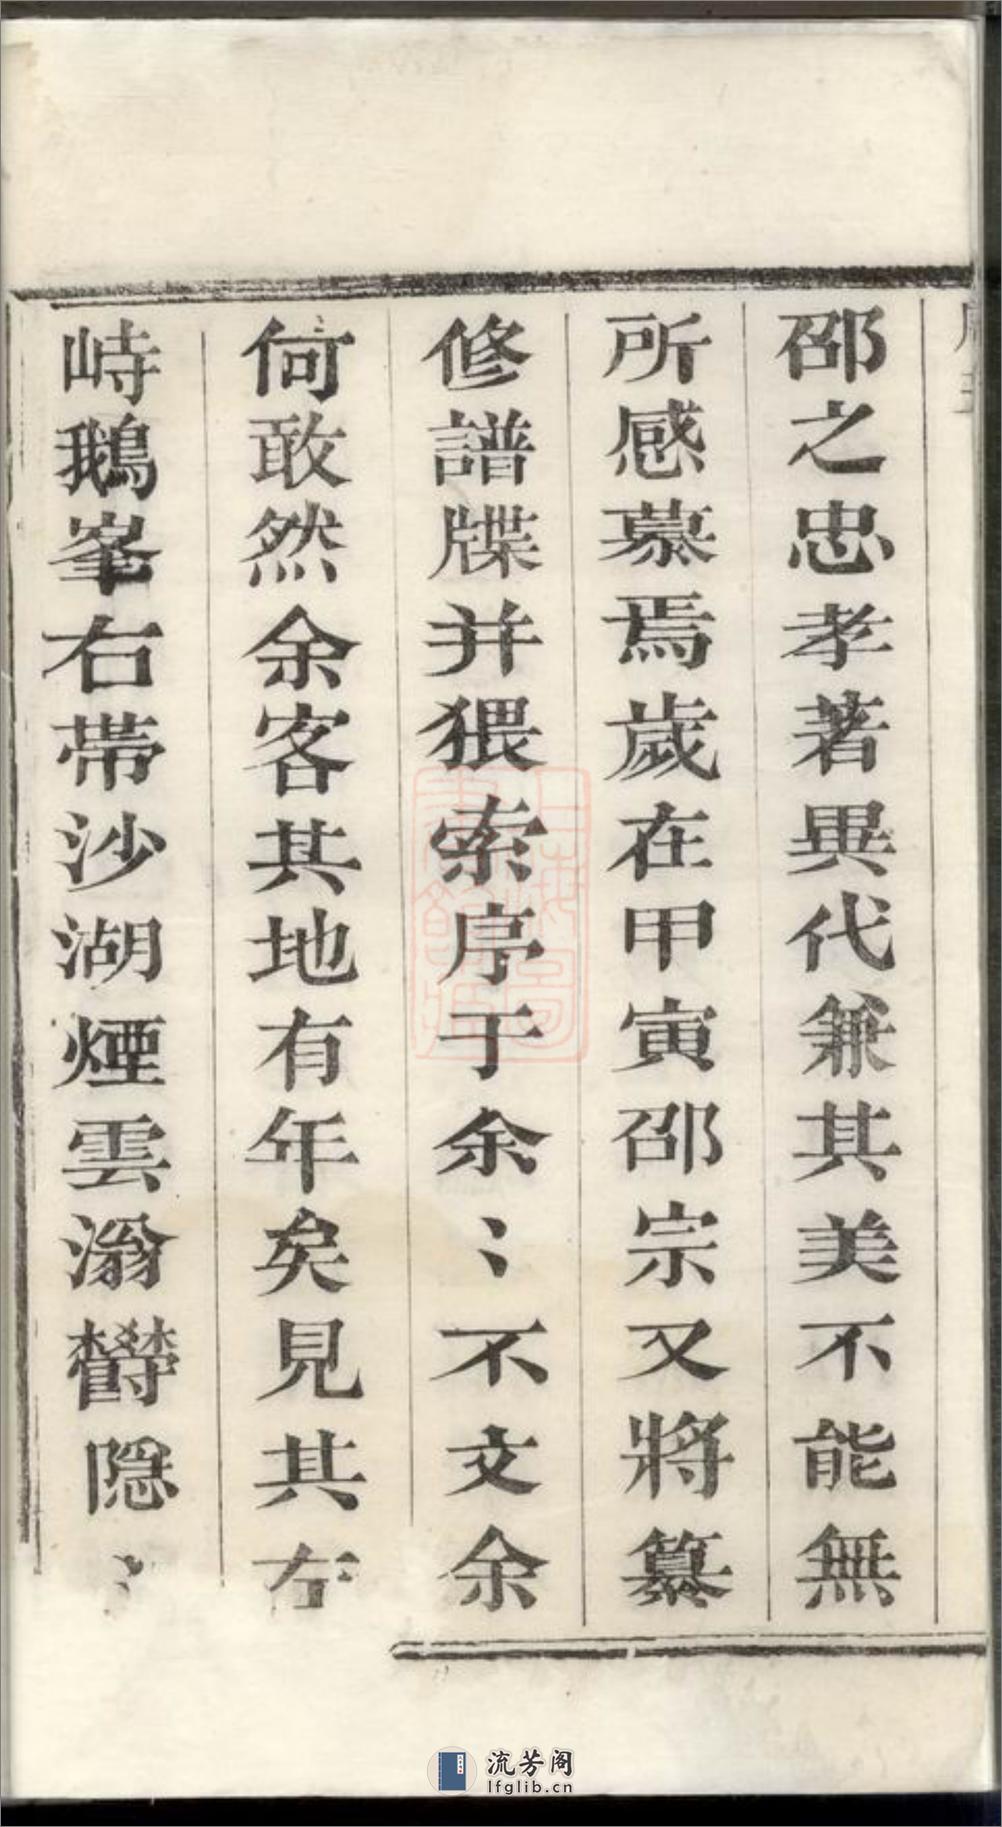 邵之忠孝著異代兼其美不能無
所感慕焉歲在甲寅邵宗又將纂
修譜牒并猥索序于余〻不文余
何敢然余客其地有年矣見其左
峙鵝峯右帶沙湖煙雲滃欝隐〻
上海圖書館藏
流芳阁
lfglib.cn